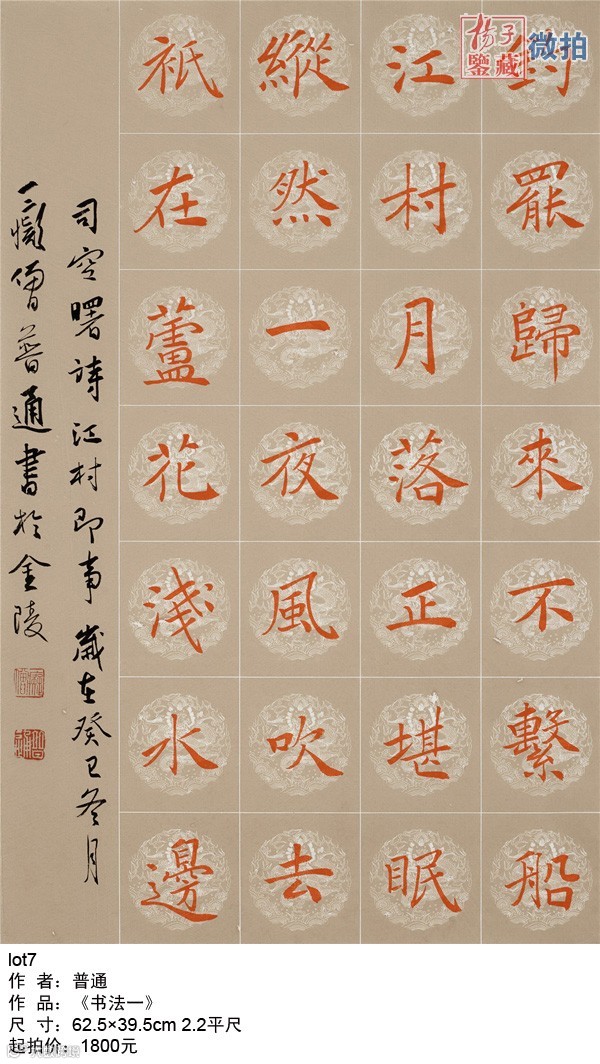 釣罷歸來不繫船
江村月落正堪眠
縱然一夜風吹去
祇在蘆花淺水邊
司空曙詩江村即事歲在癸巳冬月
懶僧普通書於金陵
揚子鑒藏
微拍
lot7
作 者：普通
作 品：《书法一》
尺 寸：62.5×39.5cm 2.2平尺
起拍价：1800元